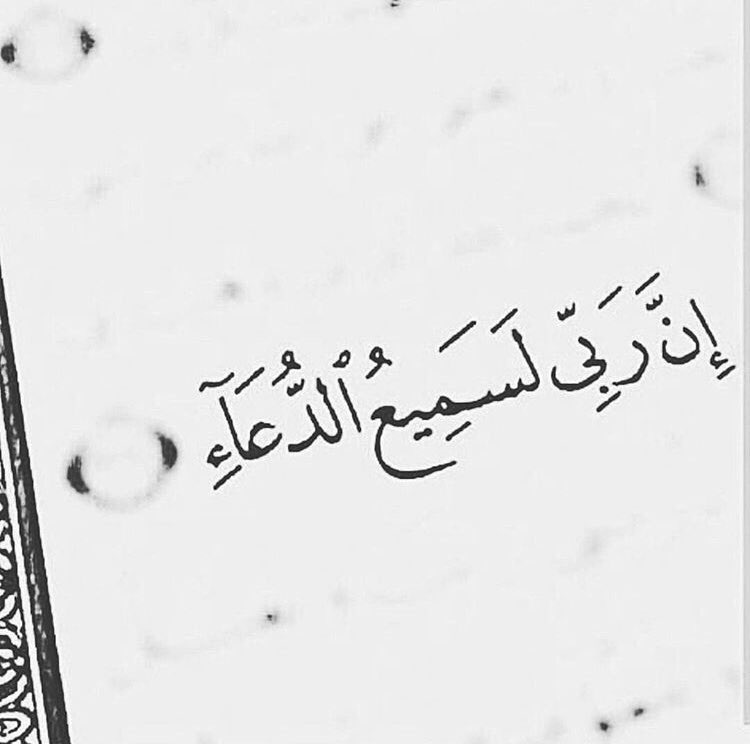 إِنَّ رَبِّى لَسَمِيعُ ٱلدُّعَآءِ